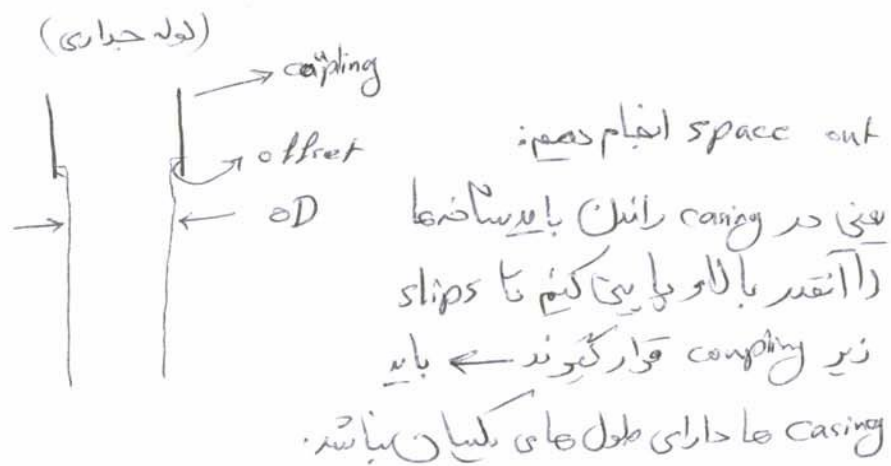 (لوله جداری)
coupling
offset
OD
space out انجام دهیم:
یعنی در casing راندن باید شاخه‌ها
را آنقدر بالا و پایین کنیم تا slips
زیر coupling قرار گیرند ← باید
casing ها دارای طول های یکسان باشند.